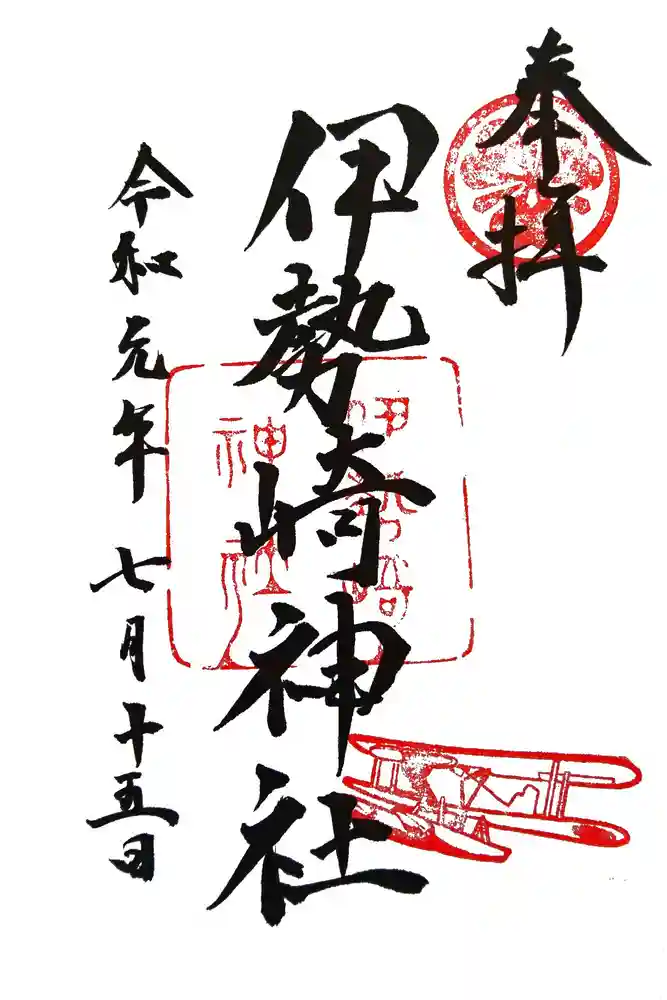 奉拝
伊勢崎神社
伊勢崎
神社
令和元年七月十五日